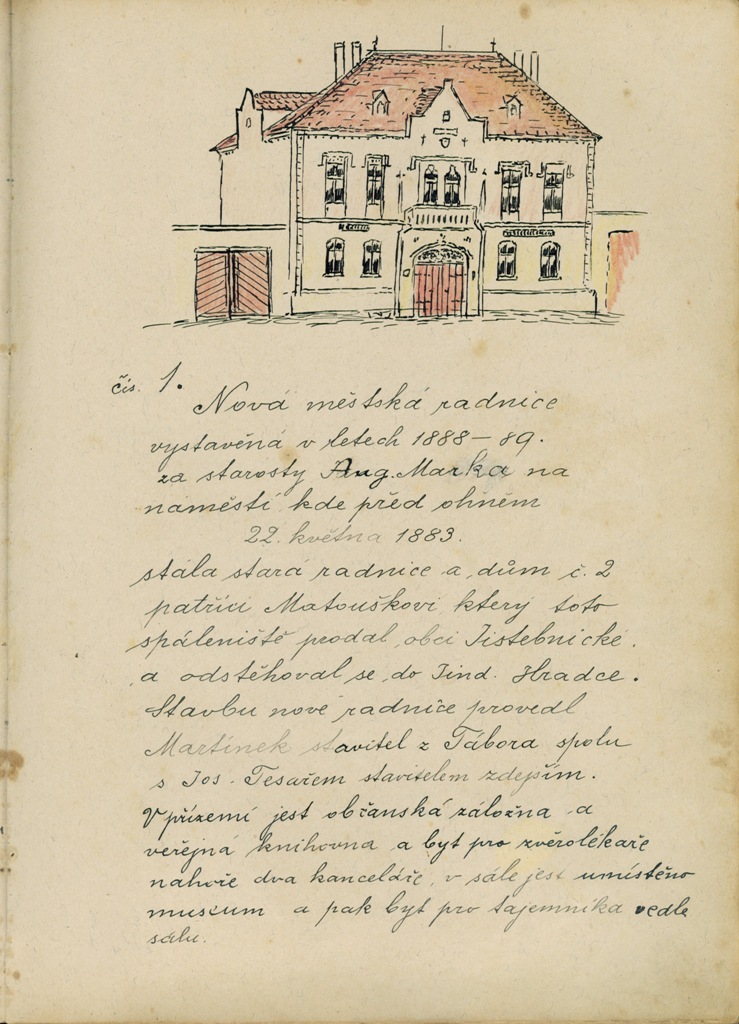 čís. 1.
Nová městská radnice
vystavěná v letech 1888–89.
za starosty Aug. Marka na
náměstí kde před ohněm
22. května 1883.
stála stará radnice a dům č. 2
patřící Matouškovi, který toto
spáleniště prodal obci Jistebnické.
a odstěhoval se do Jind. Hradce.
Stavbu nové radnice provedl
Martínek stavitel z Tábora spolu
s Jos. Tesařem stavitelem zdejším.
V přízemí jest občanská záložna a
veřejná knihovna a byt pro zvěrolékaře
nahoře dva kanceláře, v sále jest umístěno
museum a pak byt pro tajemníka vedle
sálu.